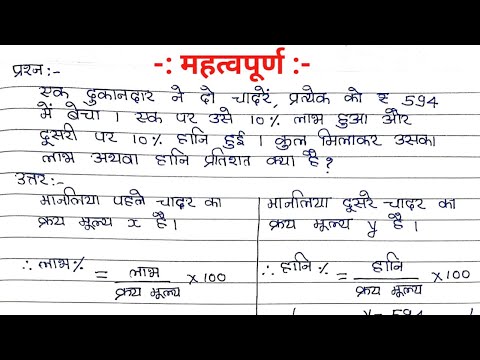 -: महत्वपूर्ण :-
प्रश्न:-
एक दुकानदार ने दो चादरें, प्रत्येक को ₹ 594
में बेचा । एक पर उसे 10% लाभ हुआ और
दूसरी पर 10% हानि हुई । कुल मिलाकर उसका
लाभ अथवा हानि प्रतिशत क्या है?
उत्तर:-
मानलिया पहले चादर का
क्रय मूल्य x है।
∴ लाभ% = लाभ / क्रय मूल्य ×100
मानलिया दूसरे चादर का
क्रय मूल्य y है।
∴ हानि% = हानि / क्रय मूल्य ×100